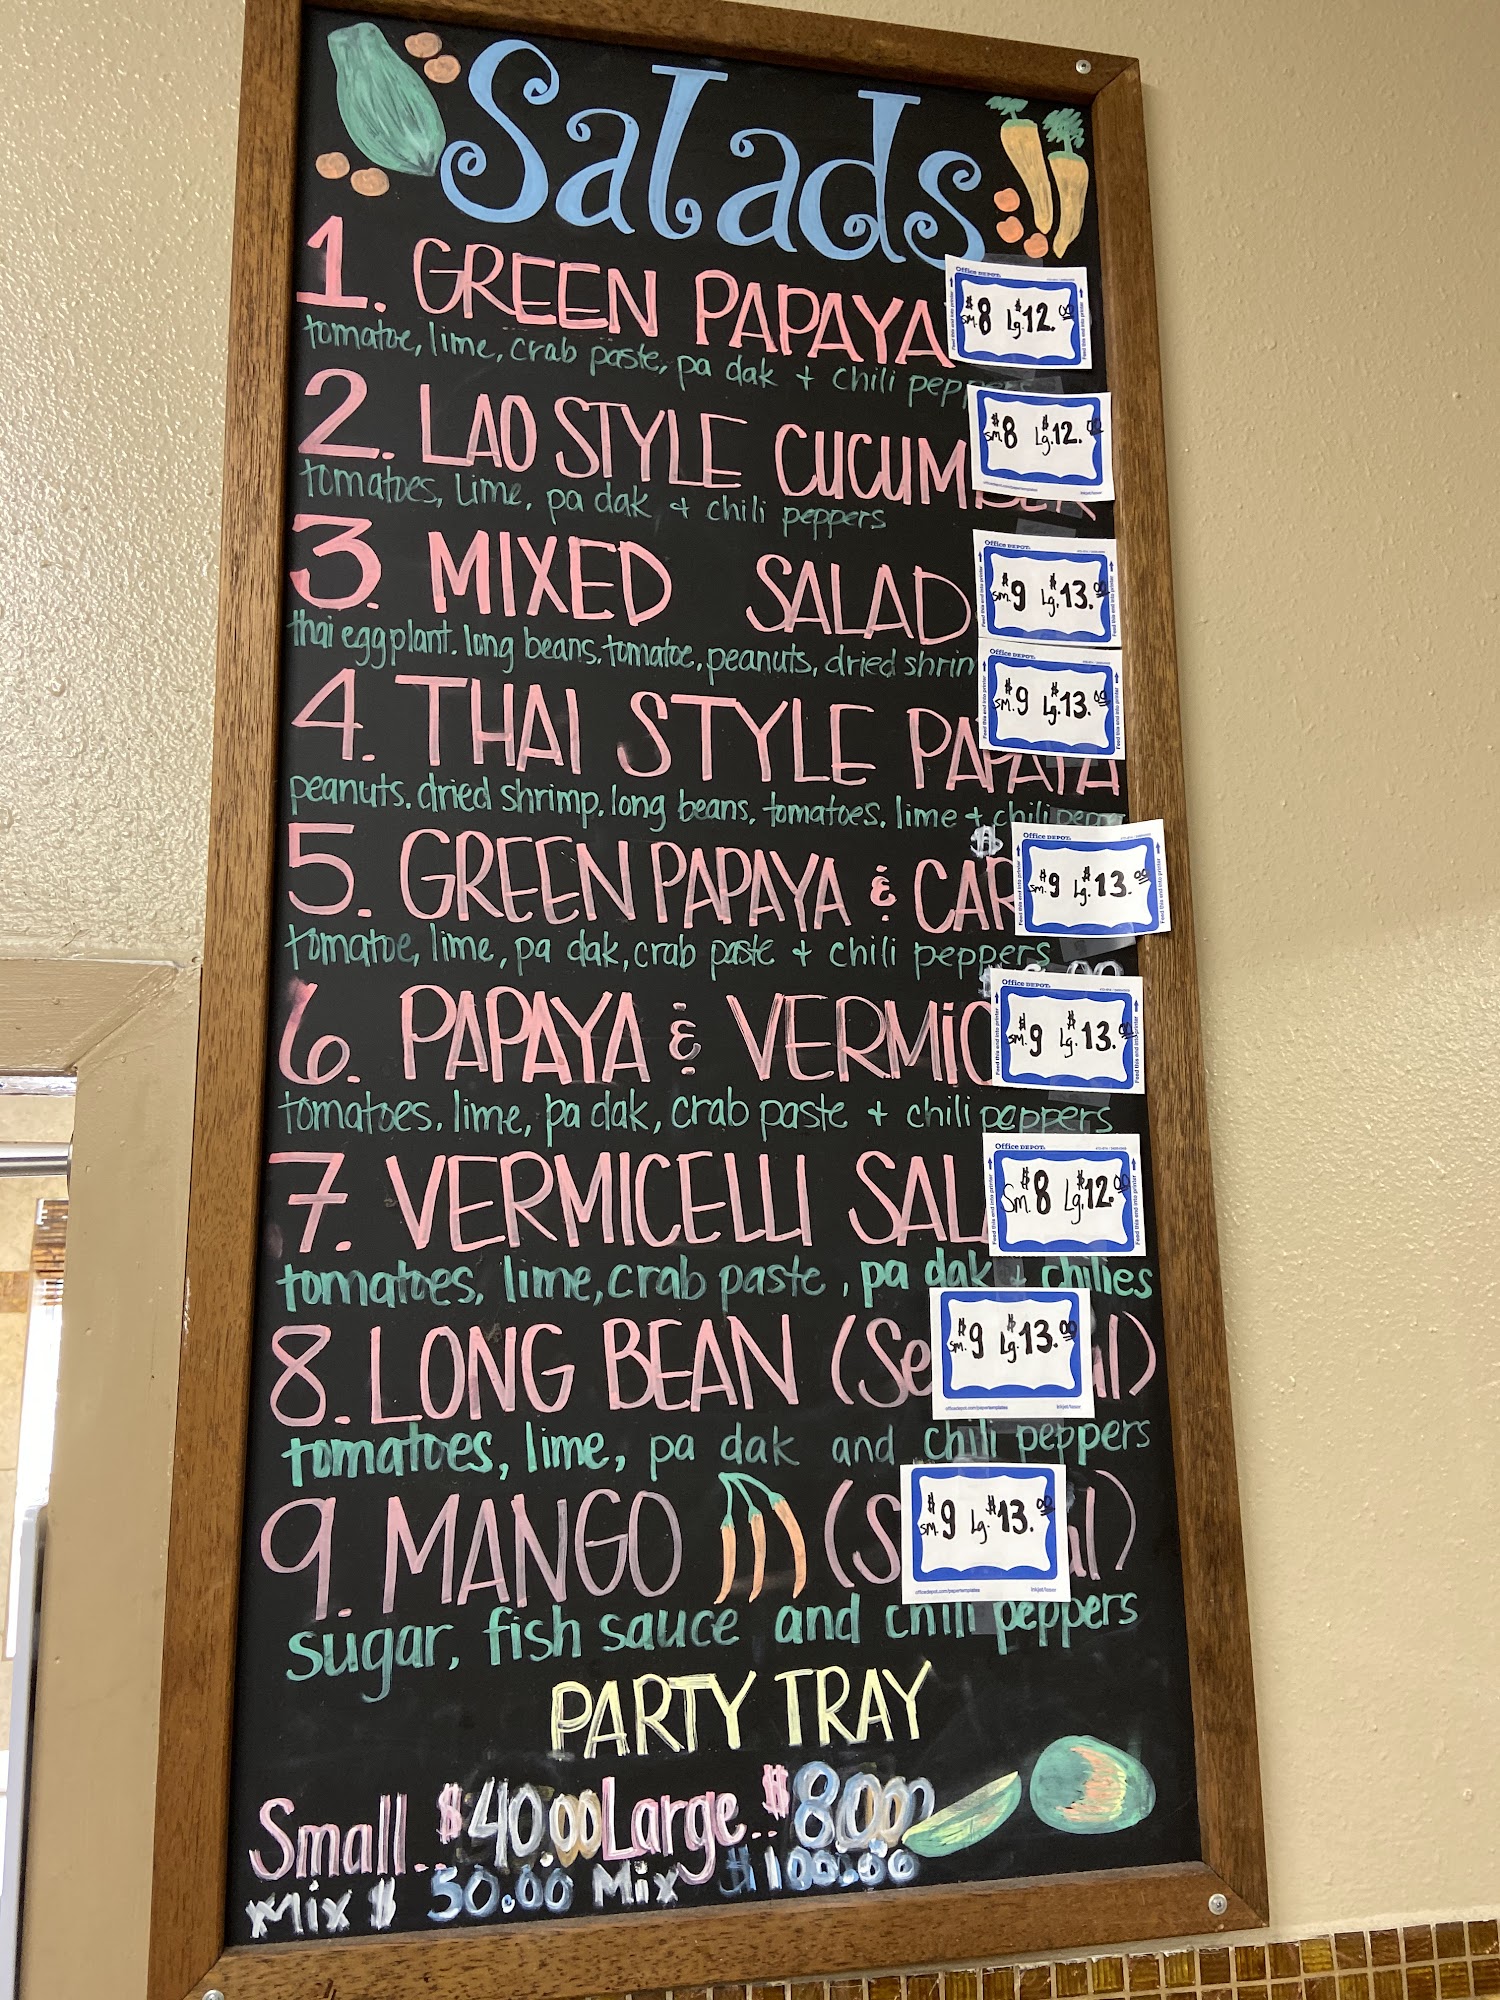 Salads
1. GREEN PAPAYA $ sm. 8 $ Lg. 12.00
tomatoe, lime, crab paste, pa dak + chili peppers
2. LAO STYLE CUCUMBER $ sm. 8 $ Lg. 12.00
tomatoes, lime, pa dak + chili peppers
3. MIXED SALAD $ sm. 9 $ Lg. 13.00
thai eggplant. long beans. tomatoe, peanuts, dried shrim
4. THAI STYLE PAPAYA $ sm. 9 $ Lg. 13.00
peanuts. dried shrimp. long beans, tomatoes. lime + chili pepper
5. GREEN PAPAYA & CAR $ sm. 9 $ Lg. 13.00
tomatoe, lime, pa dak, crab paste + chili peppers
6. PAPAYA & VERMIC $ sm. 9 $ Lg. 13.00
tomatoes. lime, pa dak, crab paste + chili peppers
7. VERMICELLI SAL $ Sm. 8 $ Lg. 12.00
tomatoes, lime, crab paste, pa dak + chilies
8. LONG BEAN (Se al) $ sm. 9 $ Lg. 13.00
tomatoes, lime, pa dak and chili peppers
9. MANGO (S al) $ sm. 9 $ Lg. 13.00
sugar, fish sauce and chili peppers
PARTY TRAY
Small.. $40.00 Large.. $80.00
Mix $ 50.00 Mix $100.00